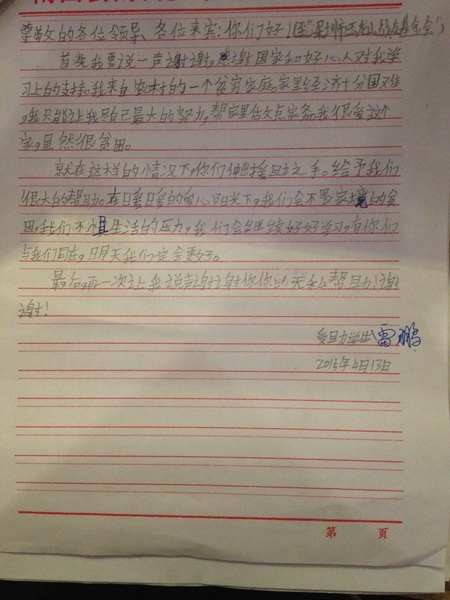 尊敬的各位领导、各位来宾:你们好!
首先我要说一声谢谢,感谢国家和好心人对我学
习上的支持。我来自农村的一个贫穷家庭。家里经济十分困难
。我只能让我尽自己最大的努力,帮家里做点家务。我很爱这个
家,虽然很贫困。
就在这样的情况下,你们伸出援助之手。给予我们
很大的帮助。在日复日的阳光下。我们会不畏家境的贫
困,我们不惧生活的压力。我们会继续好好学习。有你们
与我们同在。明天我们定会更好。
最后,再一次让我说声谢谢你们的无私帮助!谢
谢!
受助学生 雷鹏
2016年4月13日
第 页